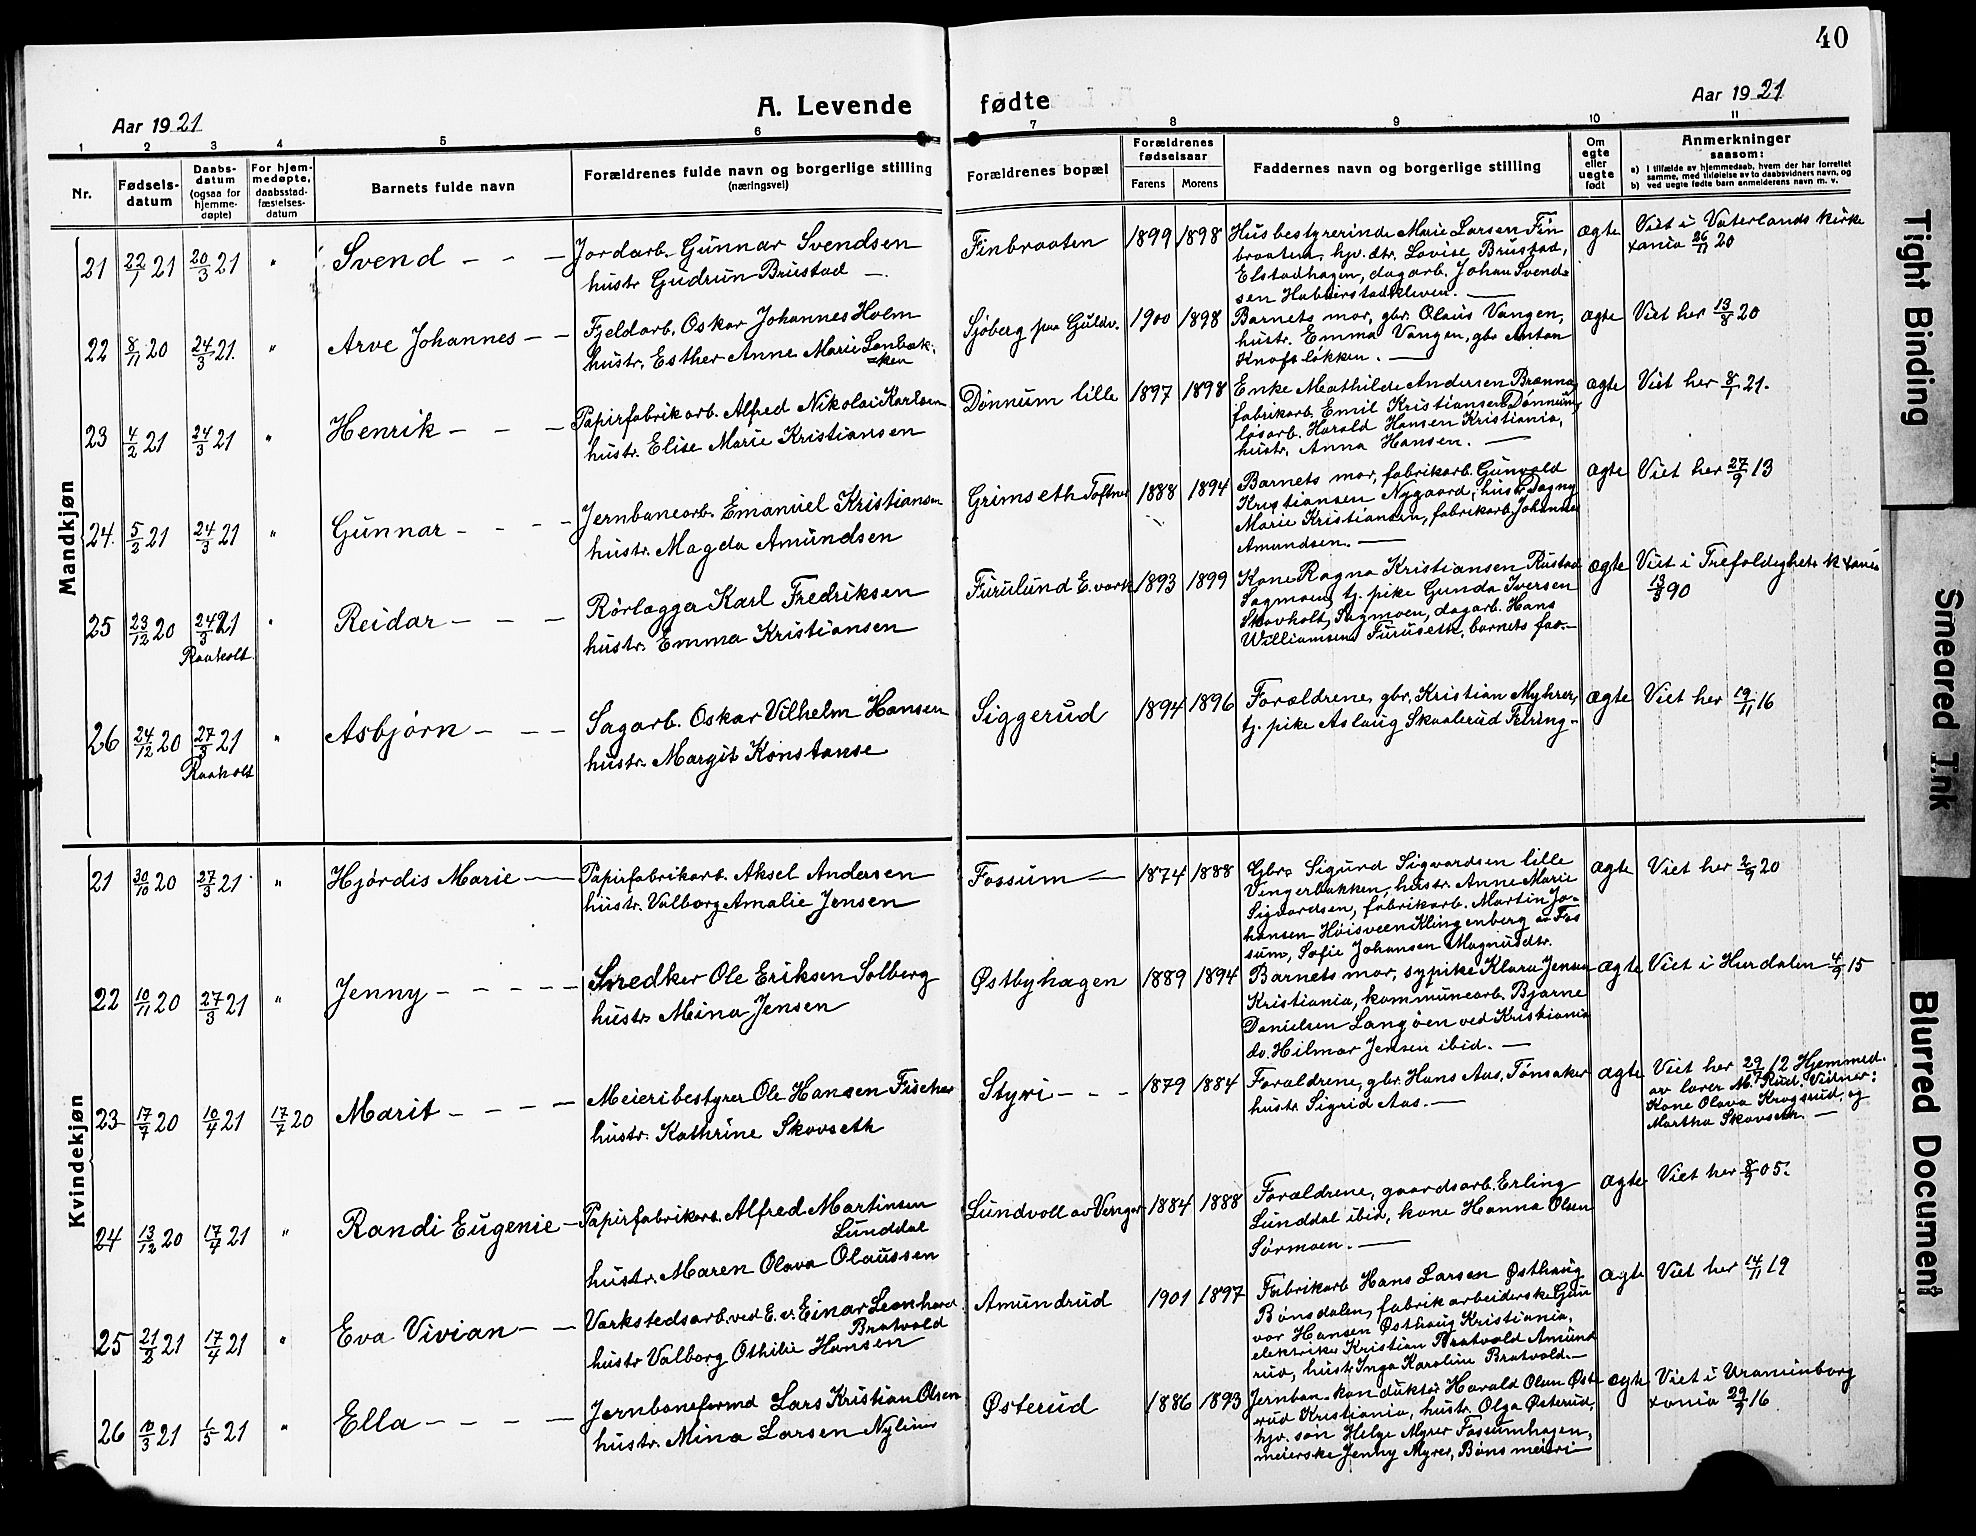 40
A. Levende fødte
Aar 1921
Aar 1921
1 2 3 4 5 6 7 8 9 10 11
Nr.
Fødsels-
datum
Daabs-
datum
(ogsaa for
hjemme-
døpte)
For hjem-
medøpte,
daabsstad-
fæstelses-
datum
Barnets fulde navn
Forældrenes fulde navn og borgerlige stilling
(næringsvei)
Forældrenes bopæl
Forældrenes
fødselsaar
Farens Morens
Faddernes navn og borgerlige stilling
Om
egte
eller
uegte
født
Anmerkninger
saasom:
a) I tilfælde av hjemmedaab, hvem der har forrettet
samme, med tilføielse av to daabsvidners navn, og
b) ved uegte fødte barn anmelderens navn m. v.
Mandkjøn
21 22/1 21 20/3 21 " Svend - - -
Jordarb. Gunnar Svendsen
hustr. Gudrun Brustad -
Finbraaten 1899 1898
Husbestyrerinde Marie Larsen Fin
braaten, hjv. dtr. Lovise Brustad,
Elstadhagen, dagarb. Johan Svend=
sen
ægte
Viet i Vaterlands kirke
Xania 26/11 20
22 8/11 20 24/3 21. " Arve Johannes - -
Fjeldarb. Oskar Johannes Holm
hustr. Esther Anne Marie Lonbæk-
=ken
Sjøberg paa Guldv. 1900 1898
Barnets mor, gbr. Olaus Vangen,
hustr. Emma Vangen, gbr. Anton
Knofsløkken. -
ægte
Viet her 13/8 20
23 4/2 21 24/3 21 " Henrik - - -
Papirfabrikarb. Alfred Nikolai Karlsen
hustr. Elise Marie Kristiansen
Dønnum lille 1897 1898
Enke Mathilde Andersen Brænna,
fabrikarb. Emil Kristiansen Dønnum,
løsarb. Harald Hansen Kristiania,
hustr. Anna Hansen. -
ægte
Viet her 8/1 21.
24. 5/2 21 24/3 21 " Gunnar - - - -
Jernbanearb. Emanuel Kristiansen
hustr. Magda Amundsen
Grimseth Toftner 1888 1894
Barnets mor, fabrikarb. Gunvald
Kristiansen Nygaard, hustr. Dagny
Marie Kristiansen, fabrikarb. Johannes
Amundsen. -
ægte
Viet her 27/9 13
25 23/12 20 24/3 21 " Reidar - - -
Raaholt.
Rørlægger Karl Fredriksen
hustr. Emma Kristiansen
Furulund E.værk 1893 1899
Kone Ragna Kristiansen Rustad
Sagmoen, tj. pike Gunda Iversen
Skovholt, Sagmoen, dagarb. Hans
Williamsen Furuseth, barnets far. -
ægte
Viet i Trefoldighets k Xania
13/3 90
26 24/12 20 27/3 21 " Asbjørn - - -
Raaholt
Sagarb. Oskar Vilhelm Hansen
hustr. Margit Konstanse
Siggerud 1894 1896
Forældrene, gbr. Kristian Myhrer,
tj. pike Aslaug Skaalerud Feiring -
ægte
Viet her 19/11 16
Kvindekjøn
21 30/10 20 27/3 21 " Hjørdis Marie -
Papirfabrikarb. Aksel Andersen
hustr. Valborg Amalie Jensen
Fossum - 1874 1888
Gbr. Sigurd Sigvardsen lille
Vingerbakken, hustr. Anne Marie
Sigvardsen, fabrikarb. Martin Jo-
hansen Høisveen Klingenberg av Fos
sum, Sofie Johansen Magnusdtr.
ægte
Viet her 2/9 20
22 10/11 20 27/3 21 " Jenny - - - - -
Snedker Ole Eriksen Solberg
hustr. Mina Jensen
Østbyhagen 1889 1894
Barnets mor, sypike Klara Jensen
Kristiania, kommunearb. Bjarne
Danielsen Langøen ved Kristiania
do. Hilmar Jensen ibid. -
ægte
Viet i Hurdalen 4/9 15
23 17/7 20 10/4 21 17/7 20 Marit - - - -
Meieribestyrer Ole Hansen Fischer
hustr. Kathrine Skovseth
Styri - - - 1879 1884
Forældrene, gbr. Hans Aas, Tønsaker
hustr. Sigrid Aas. -
ægte
Viet her 29/7 12 Hjemmed.
av lærer M. Rud. Vidner:
Kone Olava Krogsrud, og
Martha Skovseth. -
24 13/12 20 17/4 21 " Randi Eugenie -
Papirfabrikarb. Alfred Martinsen
Lunddal
hustr. Maren Olava Olaussen
Lundvoll av Verger 1884 1888
Forældrene, gaardsarb. Erling
Lunddal ibid, kone Hanna Olsen
Sørmoen. -
ægte
Viet her 05.
25 21/2 21 17/4 21 " Eva Vivian - -
Værkstedsarb. ved E. v. Einar Leonhard
Bratvold
hustr. Valborg Othilie Hansen
Amundrud 1901 1897
Fabrikarb. Hans Larsen Østhaug
Bønsdalen, fabrikarbeiderske Gun
vor Hansen Østhaug Kristiania,
elektriker Kristian Bratvold Amund
rud, hustr. Inga Karoline Bratvold. -
ægte
Viet her 14/11 19
26 10/3 21 1/5 21 " Ella - - - -
Jernbaneformd. Lars Kristian Olsen
hustr. Mina Larsen Nylinn
Østerud 1886 1893
Jernban.konduktør Harald Olsen Øste
rud Kristiania, hustr. Olga Østerud,
hjv. søn Helge Myrer Fossumhagen,
meierske Jenny Myrer, Bøns meieri
ægte
Viet i Uranienborg
Xania 29/9 16.
Tight Binding
Smeared Ink
Blurred Document